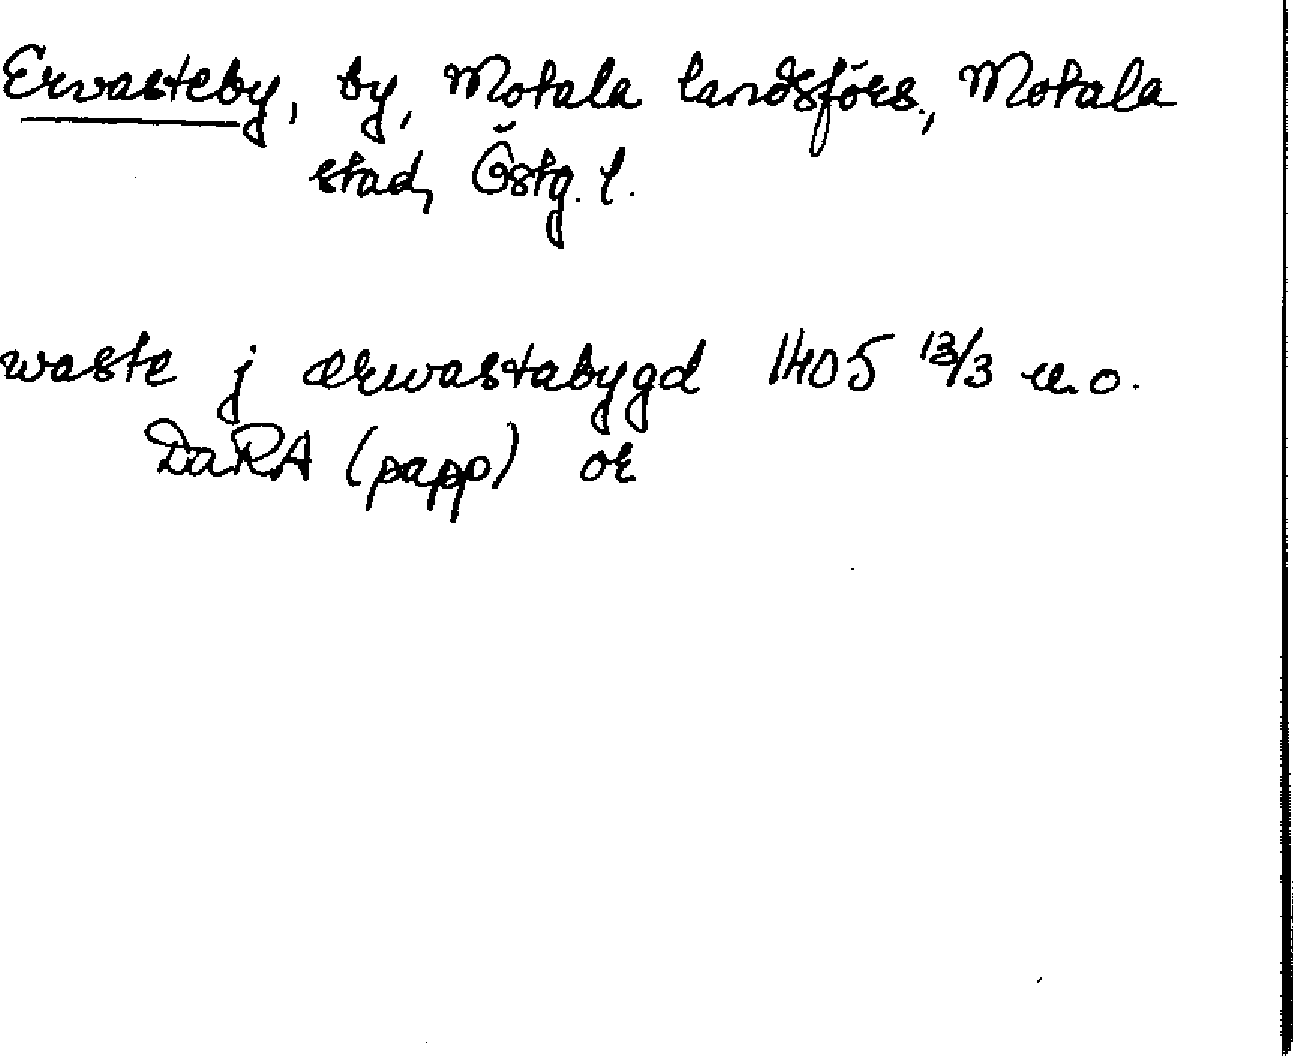 Ervasteby, by, Motala landsförs., Motala
stad, Östg. l.
waste j ærwastabygd 1405 13/3 u.o.
DaRA (papp) or